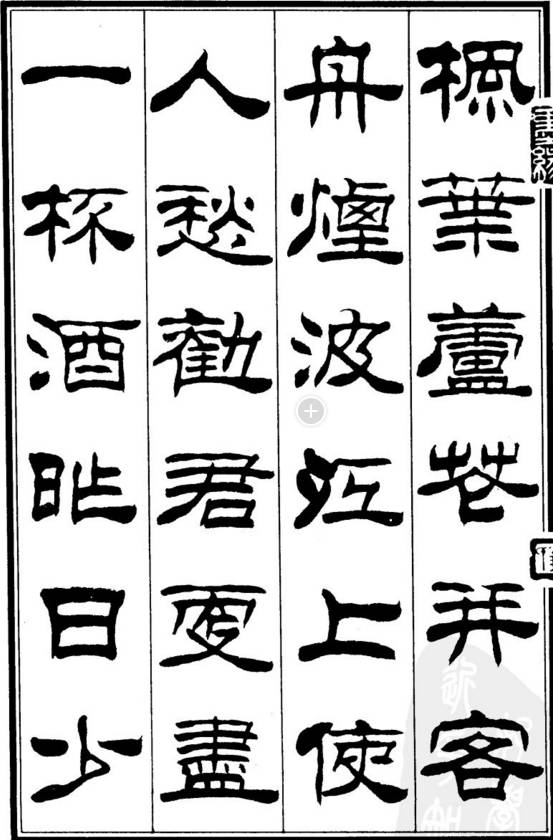 楓葉蘆花并客
舟煙波江上使
人愁勸君更盡
一杯酒昨日少